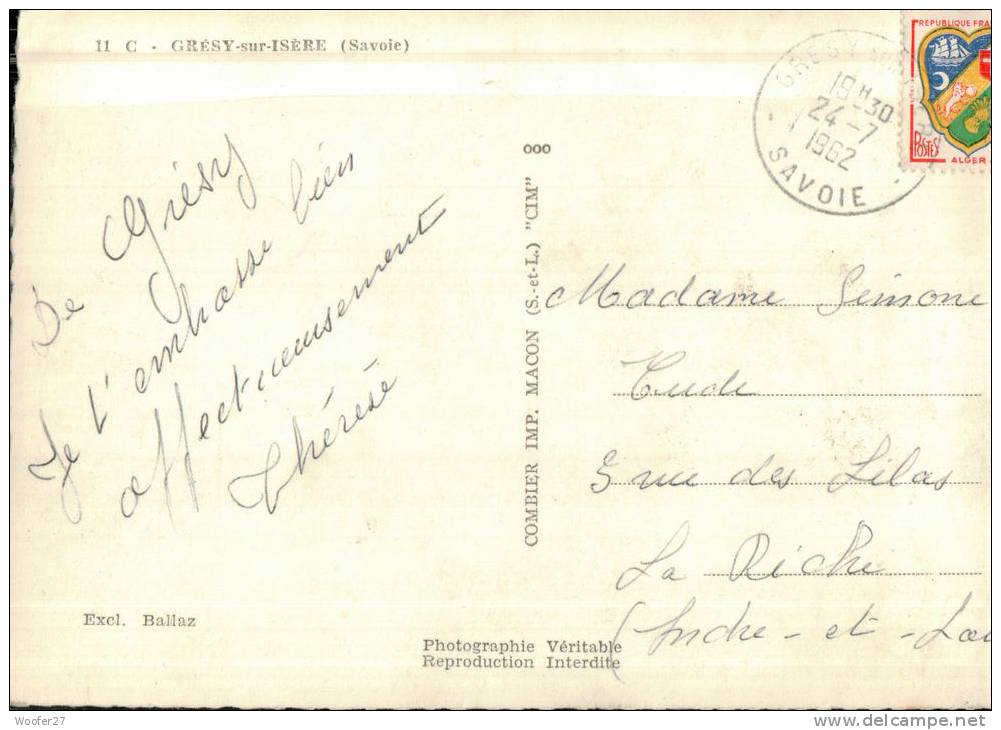 11 C - GRÉSY-sur-ISÈRE (Savoie)
GRESY
19H30
24-7
1962
SAVOIE
REPUBLIQUE FRA
POSTES
ALGER
De Grésy
Je t'embrasse bien
affectueusement
Thérèse
ooo
COMBIER IMP. MACON (S.-et-L.) "CIM"
Madame Simone
Cude
5 rue des Lilas
La Riche
(Indre-et-Loi
Excl. Ballaz
Photographie Véritable
Reproduction Interdite
Woofer27
delcampe.net